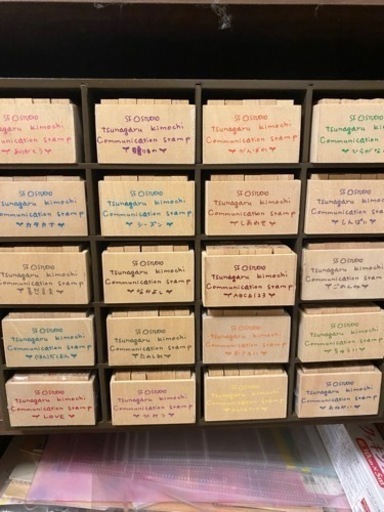 SF STUDIO
Tsunagaru kimochi
Communication stamp
ありがとう
SF STUDIO
Tsunagaru kimochi
Communication stamp
SF STUDIO
Tsunagaru kimochi
Communication stamp
がんばれ
SF STUDIO
Tsunagaru kimochi
Communication stamp
ひらがな
SF STUDIO
Tsunagaru kimochi
Communication stamp
カタカナ
SF STUDIO
Tsunagaru kimochi
Communication stamp
シーズン
SF STUDIO
Tsunagaru kimochi
Communication stamp
しあわせ
SF STUDIO
Tsunagaru kimochi
Communication stamp
しんぱい
SF STUDIO
Tsunagaru kimochi
Communication stamp
SF STUDIO
Tsunagaru kimochi
Communication stamp
なかよし
SF STUDIO
Tsunagaru kimochi
Communication stamp
ABC&123
SF STUDIO
Tsunagaru kimochi
Communication stamp
ごめんね
SF STUDIO
Tsunagaru kimochi
Communication stamp
SF STUDIO
Tsunagaru kimochi
Communication stamp
たんじょう
SF STUDIO
Tsunagaru kimochi
Communication stamp
SF STUDIO
Tsunagaru kimochi
Communication stamp
SF STUDIO
Tsunagaru kimochi
Communication stamp
LOVE
SF STUDIO
Tsunagaru kimochi
Communication stamp
SF STUDIO
Tsunagaru kimochi
Communication stamp
SF STUDIO
Tsunagaru kimochi
Communication stamp
おねがい